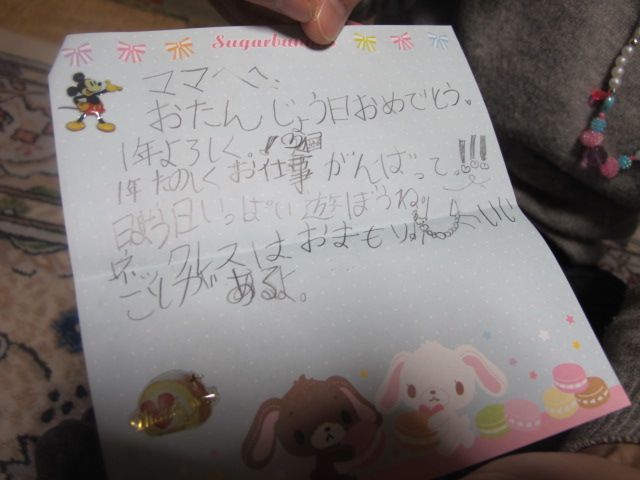 Sugarbun
ママへ
おたんじょう日おめでとう。
1年よろしく。
1年たのしくお仕事がんばって。!!!
日よう日いっぱい遊ぼうね
ネックレスはおまもり
いい
ことがあるよ。